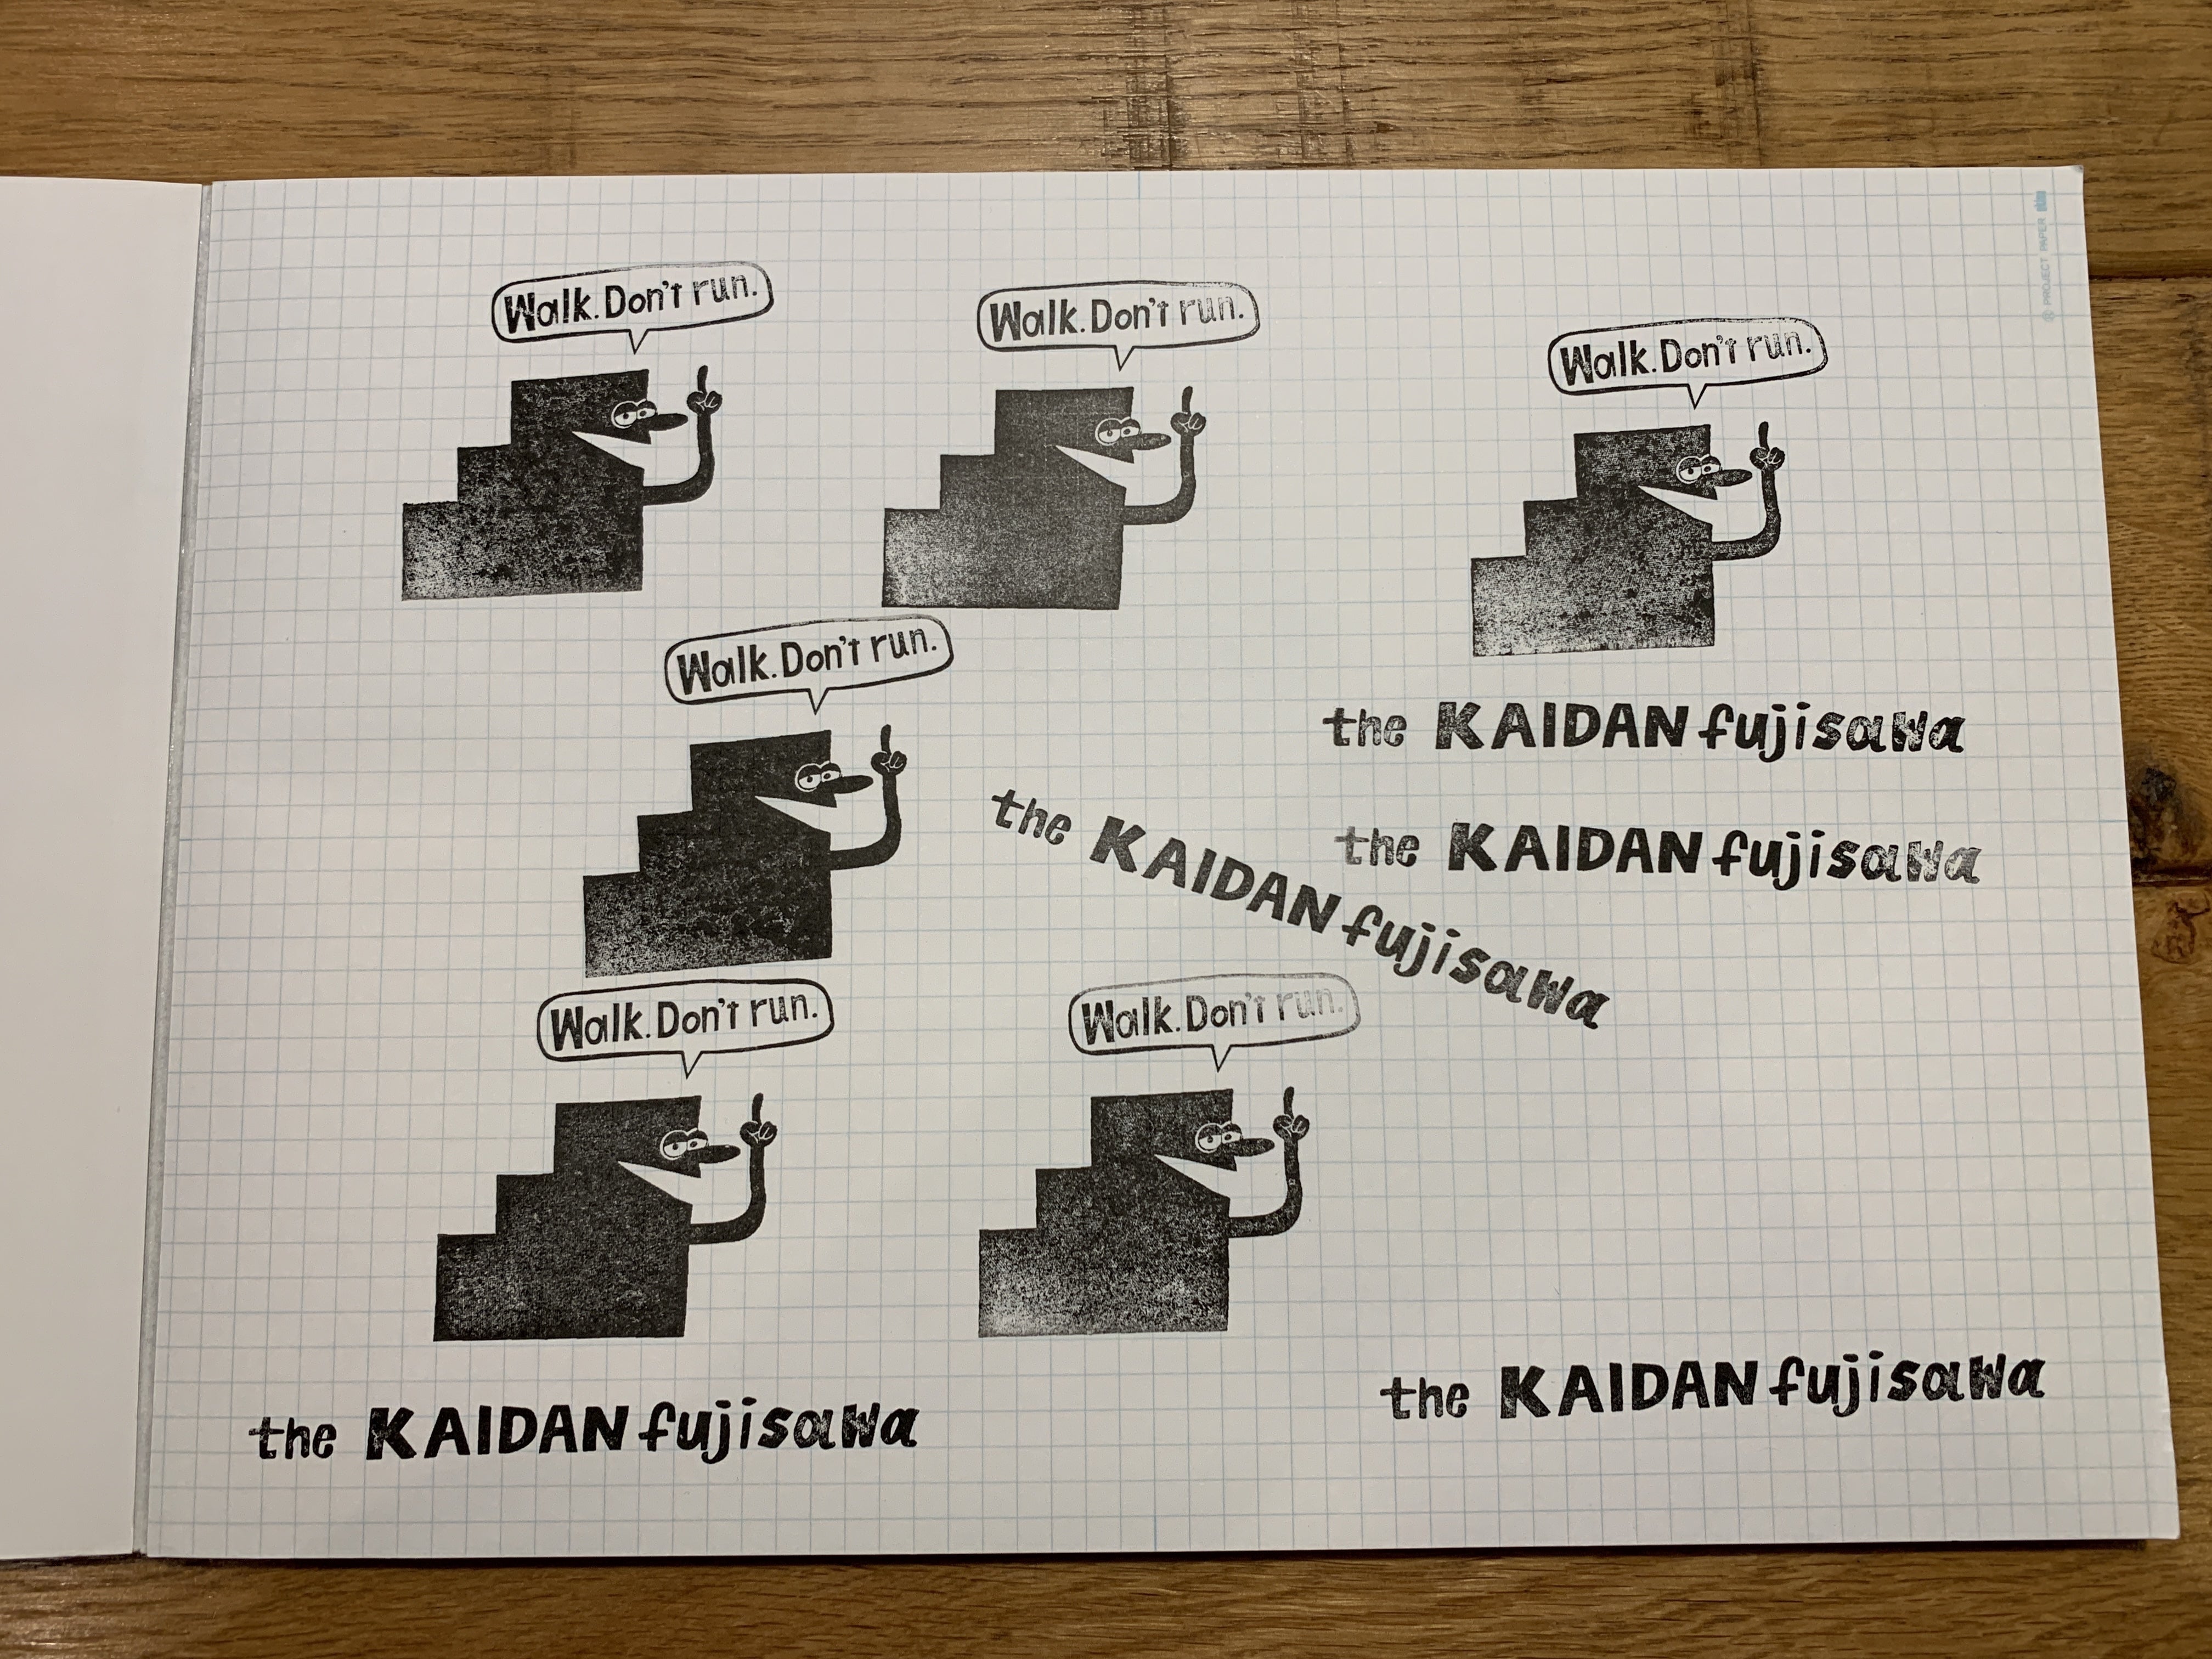 PROJECT PAPER
Walk. Don't run.
Walk. Don't run.
Walk. Don't run.
Walk. Don't run.
the KAIDAN fujisawa
the KAIDAN fujisawa
the KAIDAN fujisawa
Walk. Don't run.
Walk. Don't run.
the KAIDAN fujisawa
the KAIDAN fujisawa